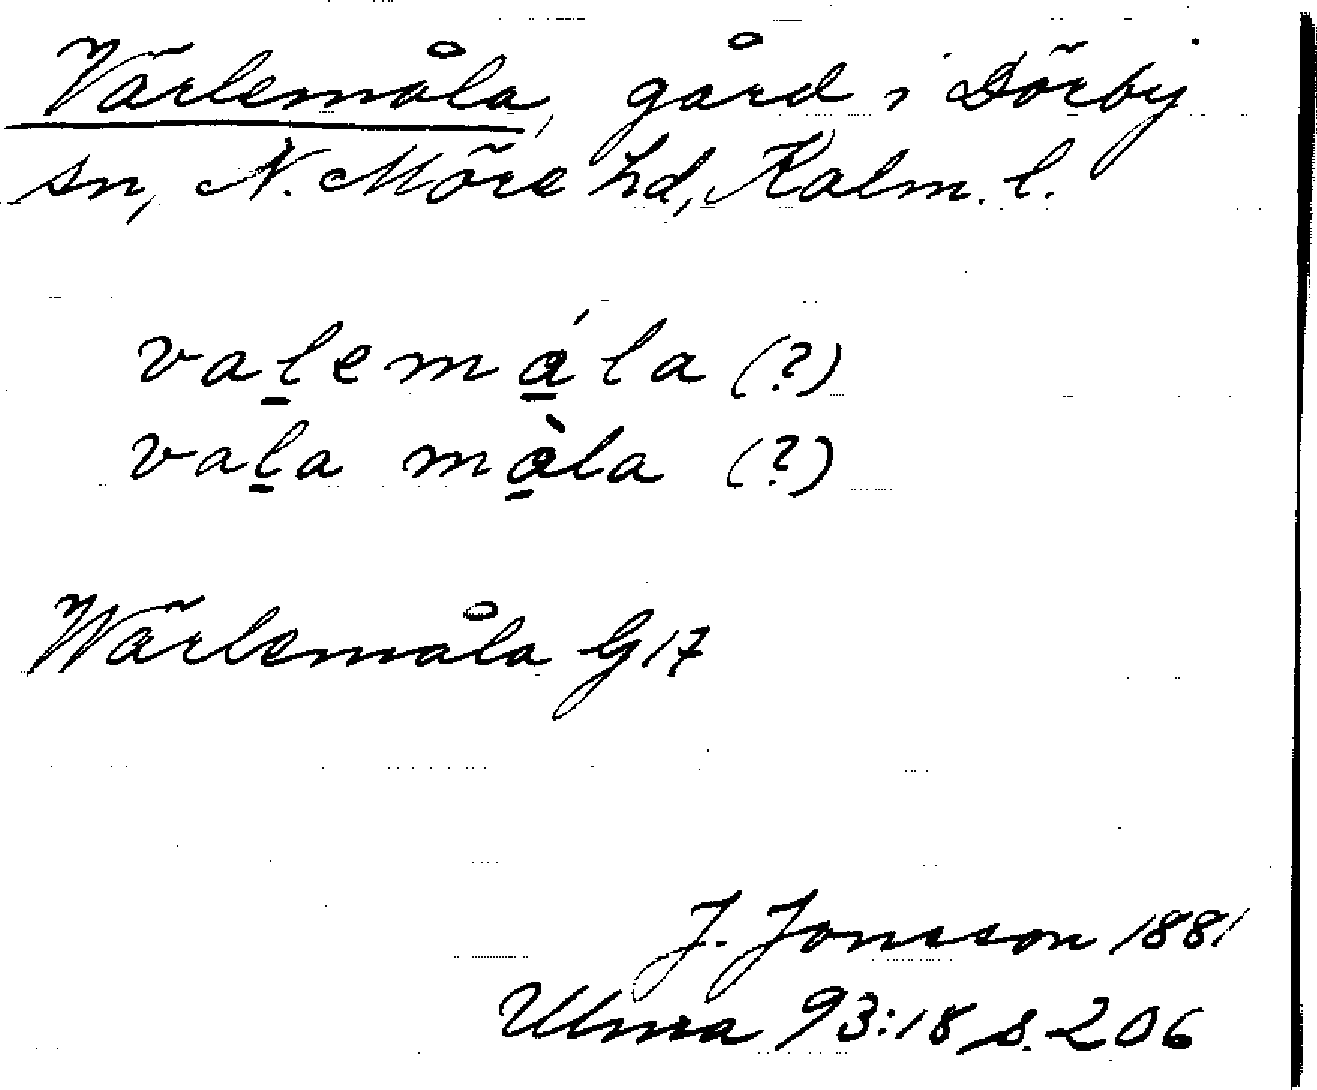 Värlemåla, gård i Dörby
sn, N. Möre hd, Kalm. l.
va̲lemá̲la (?)
va̲la mà̲la (?)
Wärlemåla G 17
J. Jonsson 1881
Ulma 93:18 s. 206